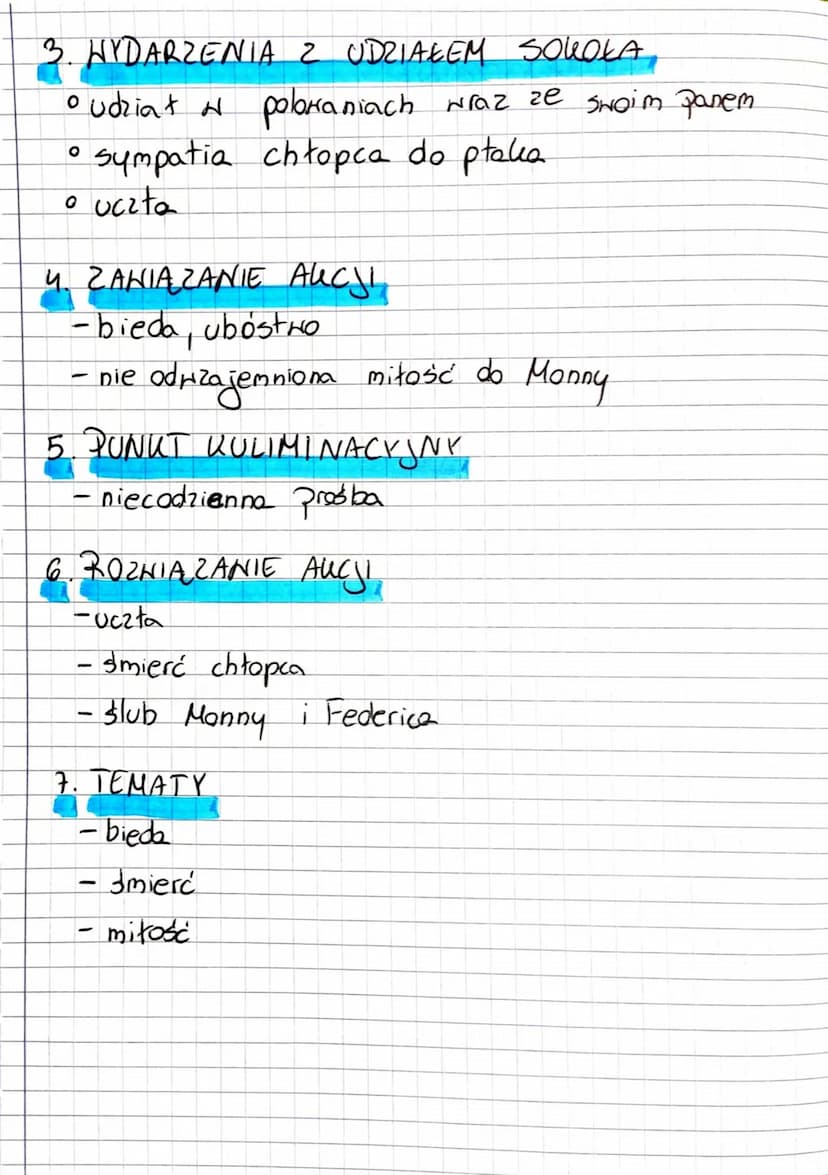 3. WYDARZENIA Z UDZIAŁEM SOKOŁA
° udział w polowaniach wraz ze swoim panem
° sympatia chłopca do ptaka
° uczta
4. ZAWIĄZANIE AKCJI
- bieda, ubóstwo
- nie odwzajemniona miłość do Monny
5. PUNKT KULIMINACYJNY
- niecodzienna prośba
6. ROZWIĄZANIE AKCJI
- uczta
- śmierć chłopca
- ślub Monny i Federica
7. TEMATY
- bieda
- śmierć
- miłość